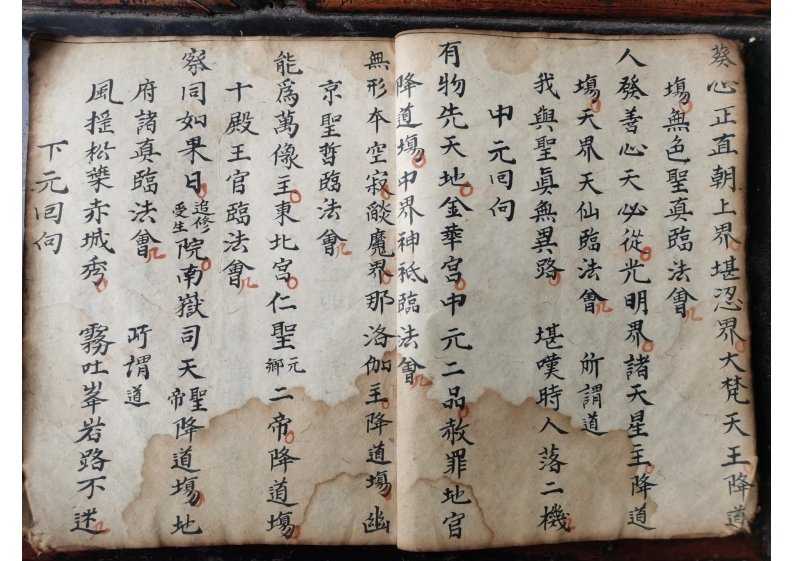 葵心正直朝上界堪忍界大梵天王降道
塲無色聖真臨法會
人發善心天必從光明界諸天星主降道
塲天界天仙臨法會 所謂道
我與聖眞無異路 堪嘆時人落二機
中元囘向
有物先天地金華宮中元二品赦罪地官
降道塲中界神祗臨法會
無形本空寂燄魔界那洛伽主降道塲幽
京聖哲臨法會
能爲萬像主東北宮仁聖元卿二帝降道塲
十殿王官臨法會
察同如果日追修受生院南嶽司天聖帝降道塲地
府諸真臨法會 所謂道
風揺松葉赤城秀 霧吐峯岩路不迷
下元囘向